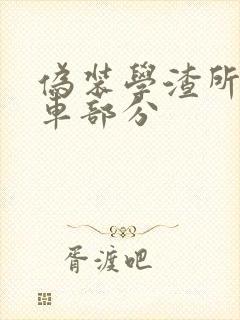 偽裝學渣所
車部分
胥渡吧